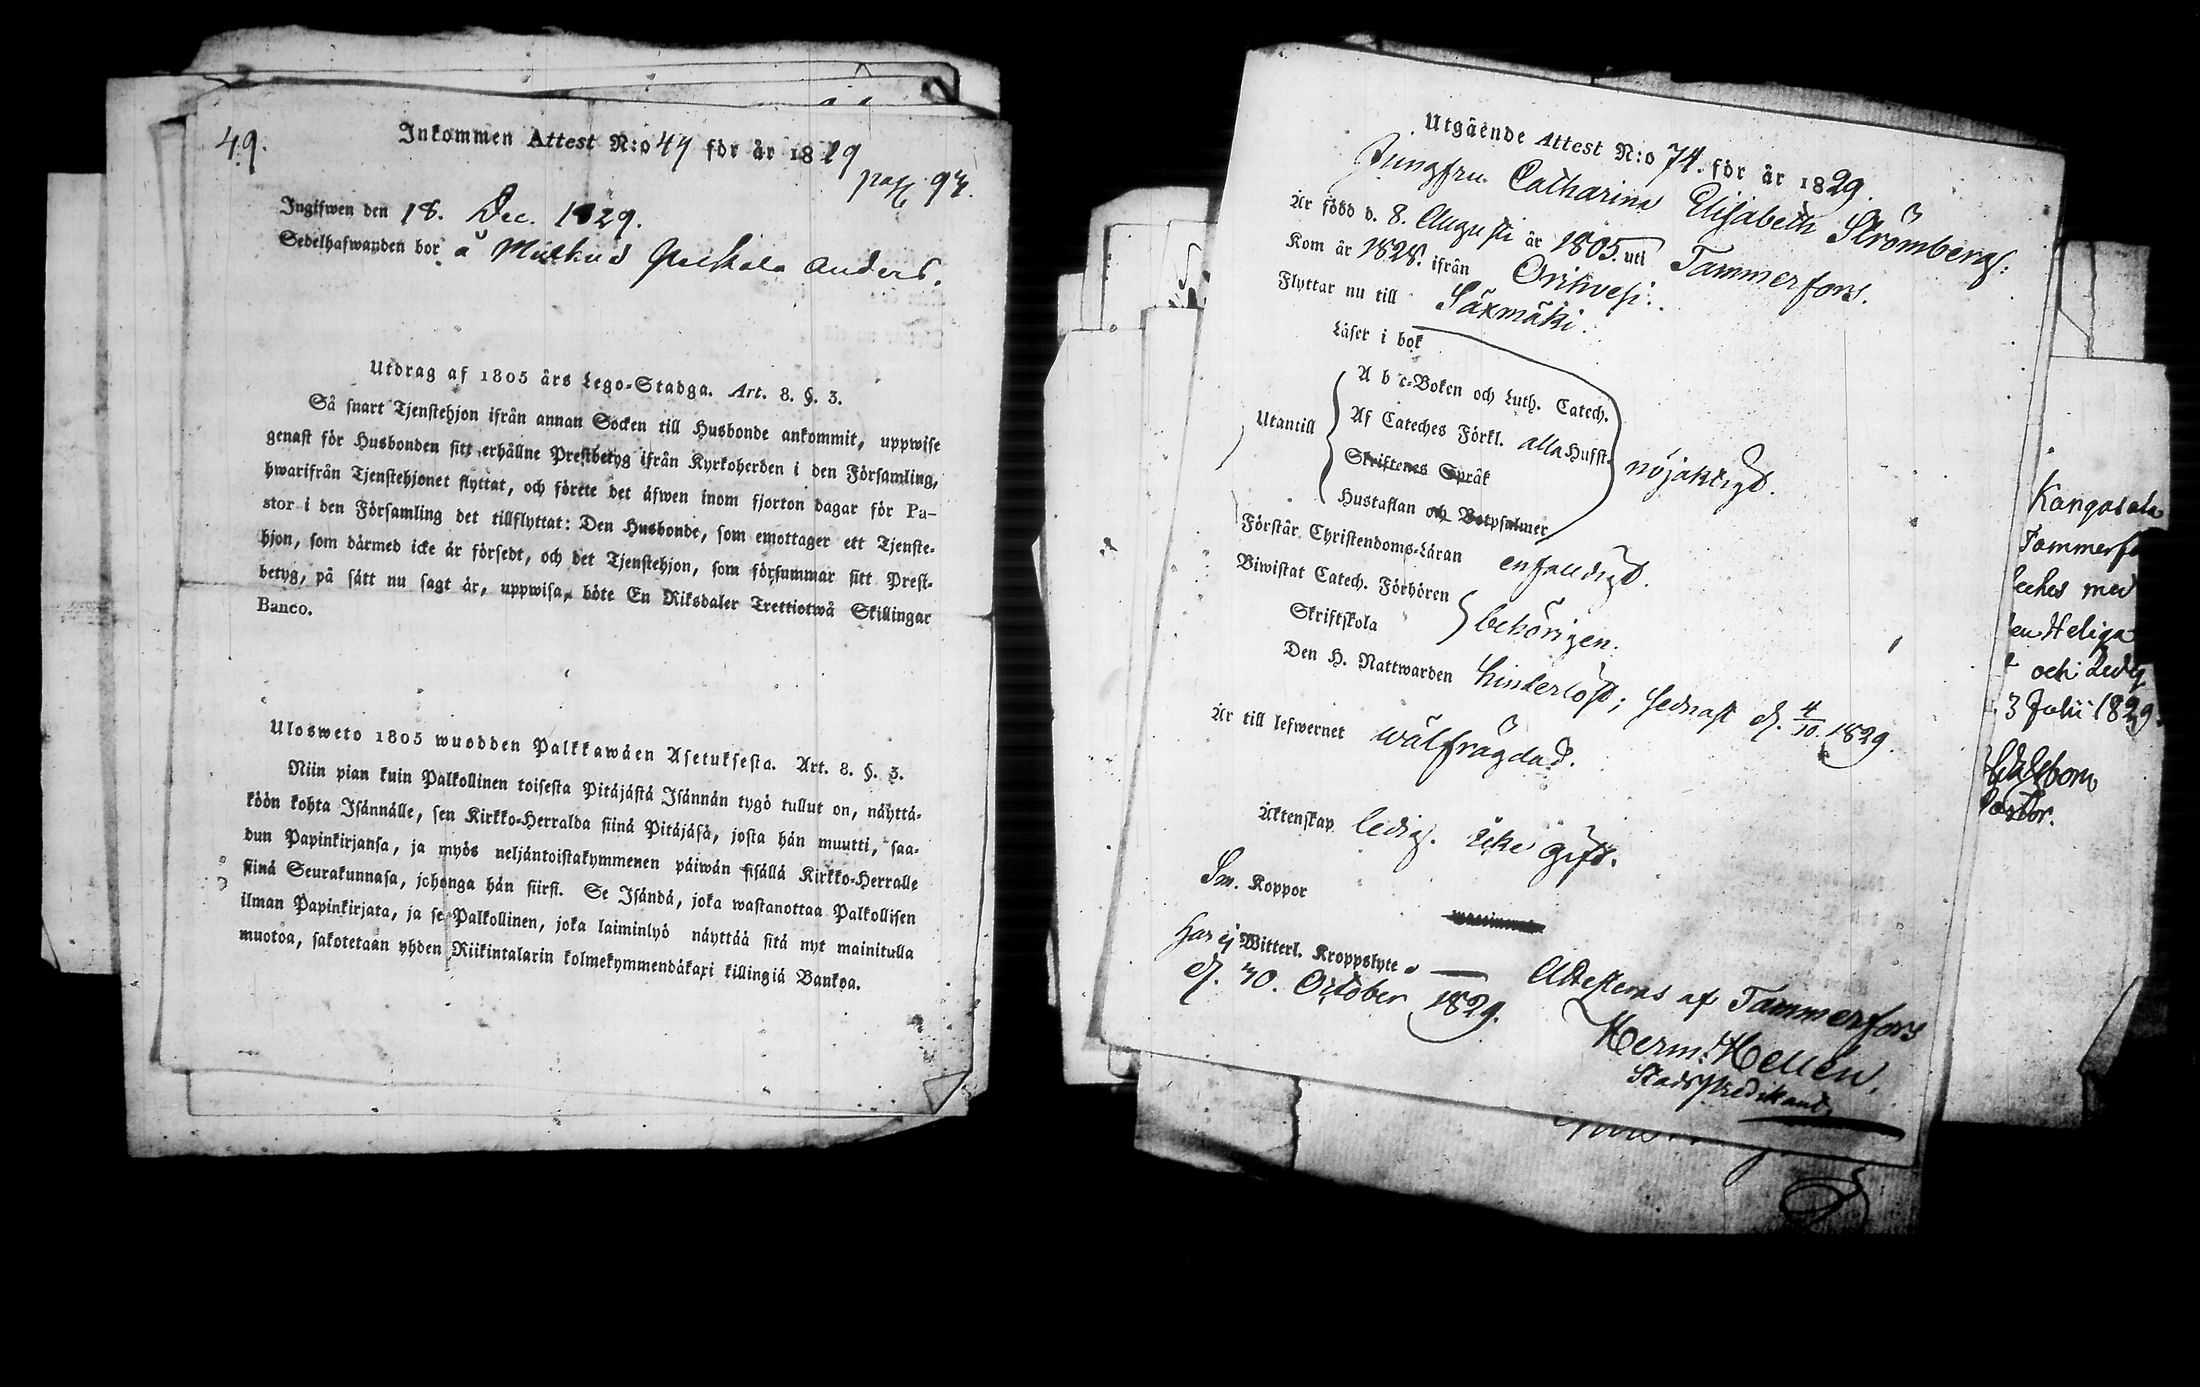 49.
Inkommen Attest N:o 47 för år 1829
pag. 97.
Ingifwen den 18. Dec. 1829.
Sedelhafwanden bor å Anders.
Utdrag af 1805 års Lego-Stadga. Art. 8. §. 3.
Så snart Tjenstehjon ifrån annan Socken till Husbonde ankommit, uppwise
genast för Husbonden sitt erhållne Prestbetyg ifrån Kyrkoherden i den Församling,
hwarifrån Tjenstehjonet flyttat, och förete det äfwen inom fjorton dagar för Pa-
stor i den Församling det tillflyttat: Den Husbonde, som emottager ett Tjenste-
hjon, som därmed icke är försedt, och det Tjenstehjon, som försummar sitt Prest-
betyg, på sätt nu sagt är, uppwisa, böte En Riksdaler Trettiotwå Skillingar
Banco.
Ulosweto 1805 wuodden Palkkawäen Asetuksesta. Art. 8. §. 3.
Niin pian kuin Palkollinen toisesta Pitäjästä Isännän tygö tullut on, näyttä-
köön kohta Isännälle, sen Kirkko-Herralda siinä Pitäjäsä, josta hän muutti, saa-
dun Papinkirjansa, ja myös neljäntoistakymmenen päiwän sisällä Kirkko-Herralle
siinä Seurakunnasa, johonga hän siirsi. Se Isändä, joka wastanottaa Palkollisen
ilman Papinkirjata, ja se Palkollinen, joka laiminlyö näyttää sitä nyt mainitulla
muotoa, sakotetaan yhden Riikintalarin kolmekymmendäkaxi killingiä Bankoa.
Utgående Attest N:o 74. för år 1829.
Jungfru Catharina Elisabeth Strömberg:
Är född d. 8. Augusti år 1805. uti Tammerfors.
Kom år 1828. ifrån Orihvesi.
Flyttar nu till Säxmäki.
Läser i bok
A b c-Boken och Luth. Catech.
Utantill
Af Cateches Förkl. alla Husst.
Skriftenes Språk
Hustaflan och Botpsalmer
nöjaktigt.
Förstår Christendoms-Läran enfaldigt.
Biwistat Catech. Förhören
Skriftskola
behörigen.
Den H. Nattwarden hinderlöst; sednast d. 4/10. 1829.
Är till lefwernet wälfrägdad.
Äktenskap ledig. icke gift.
Sm. Koppor
har ej Witterl. Kroppslyte
d. 30. October 1829.
Attesteras af Tammerfors
Herm. Hellén,
Stadspredikant.
Kangasala
Tammerfo
med
en Heliga
och Ledig
3 Julii 1829.
Pastor.